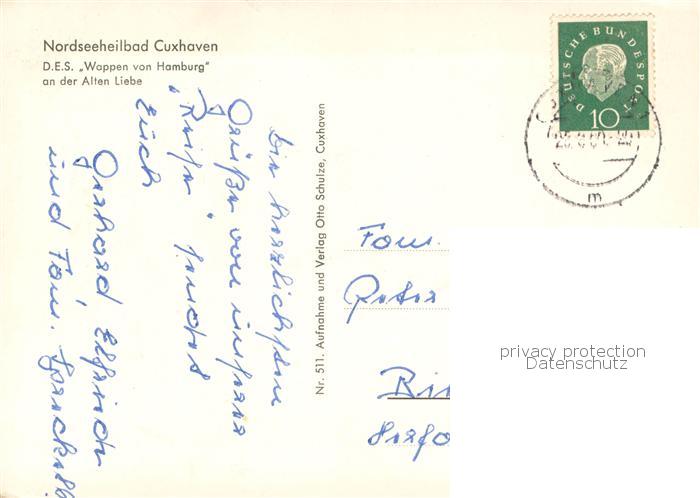 Nordseeheilbad Cuxhaven
D.E.S. „Wappen von Hamburg"
an der Alten Liebe
DEUTSCHE BUNDESPOST
10
m
Die herzlichsten
Grüße von unserer
„Reise" sendet
Euch
Gerhard Elfriede
und Fam.
Nr. 511. Aufnahme und Verlag Otto Schulze, Cuxhaven
Fam.
Peter
privacy protection
Datenschutz